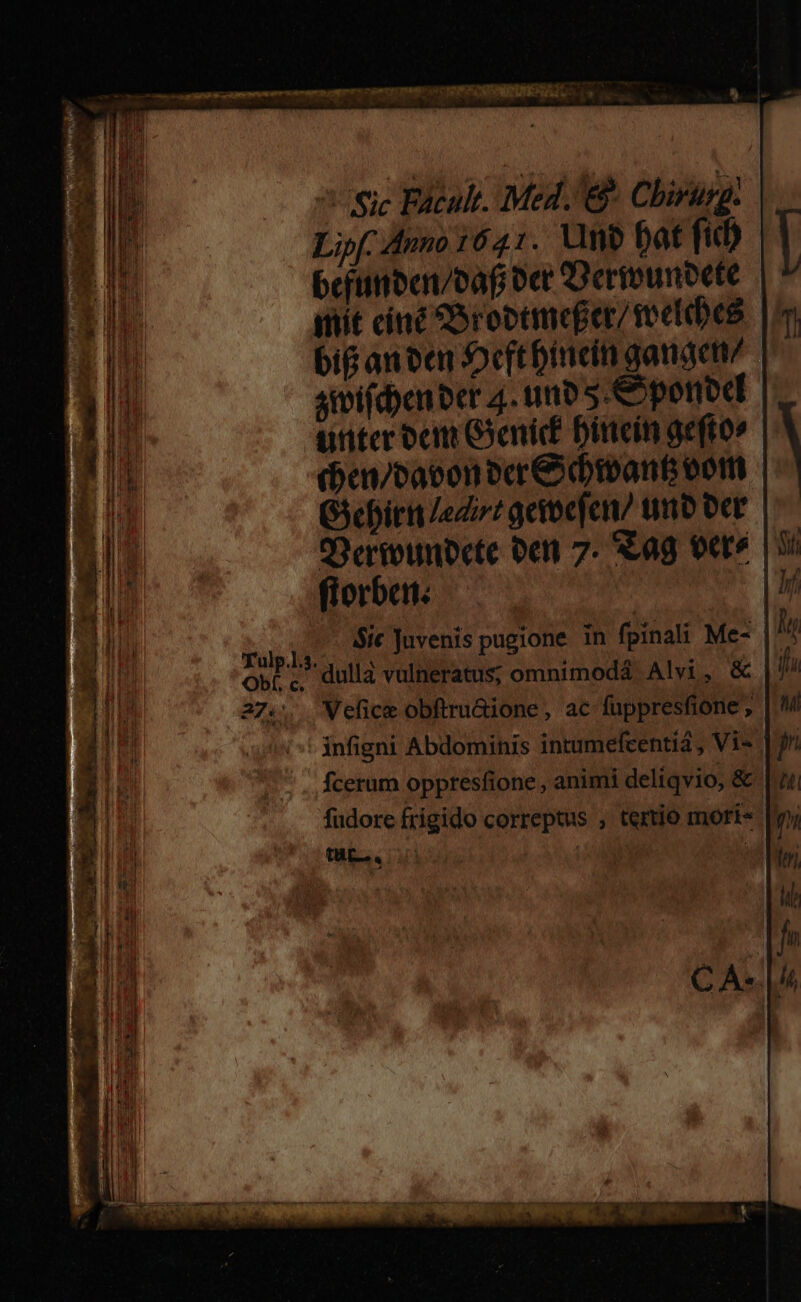 Sic Facult. Med. & Chirurg.
Lipſ. Anno 1641. Und hat ſich
befunden/daß der Verwundete
mit einẽ Brodtmeßer/welches
biß an den Heft hinein gangen/
zwiſchen der 4. und 5. Spondel
unter dem Genick hinein geſto⸗
chen/davon der Schwantz vom
Gehirn lædirt geweſen/ und der
Verwundete den 7. Tag ver⸗
ſtorben.
Sic Juvenis pugione in ſpinali Me-
Tulp. l. 3. dullâ vulneratus, omnimodâ Alvi, &
Obſ. c.
27. Veſicæ obſtructione, ac ſuppresſione,
inſigni Abdominis intumeſcentiâ, Vi-
ſcerum oppresſione, animi deliqvio, &
ſudore frigido correptus, tertio mori-
tur.
CA-